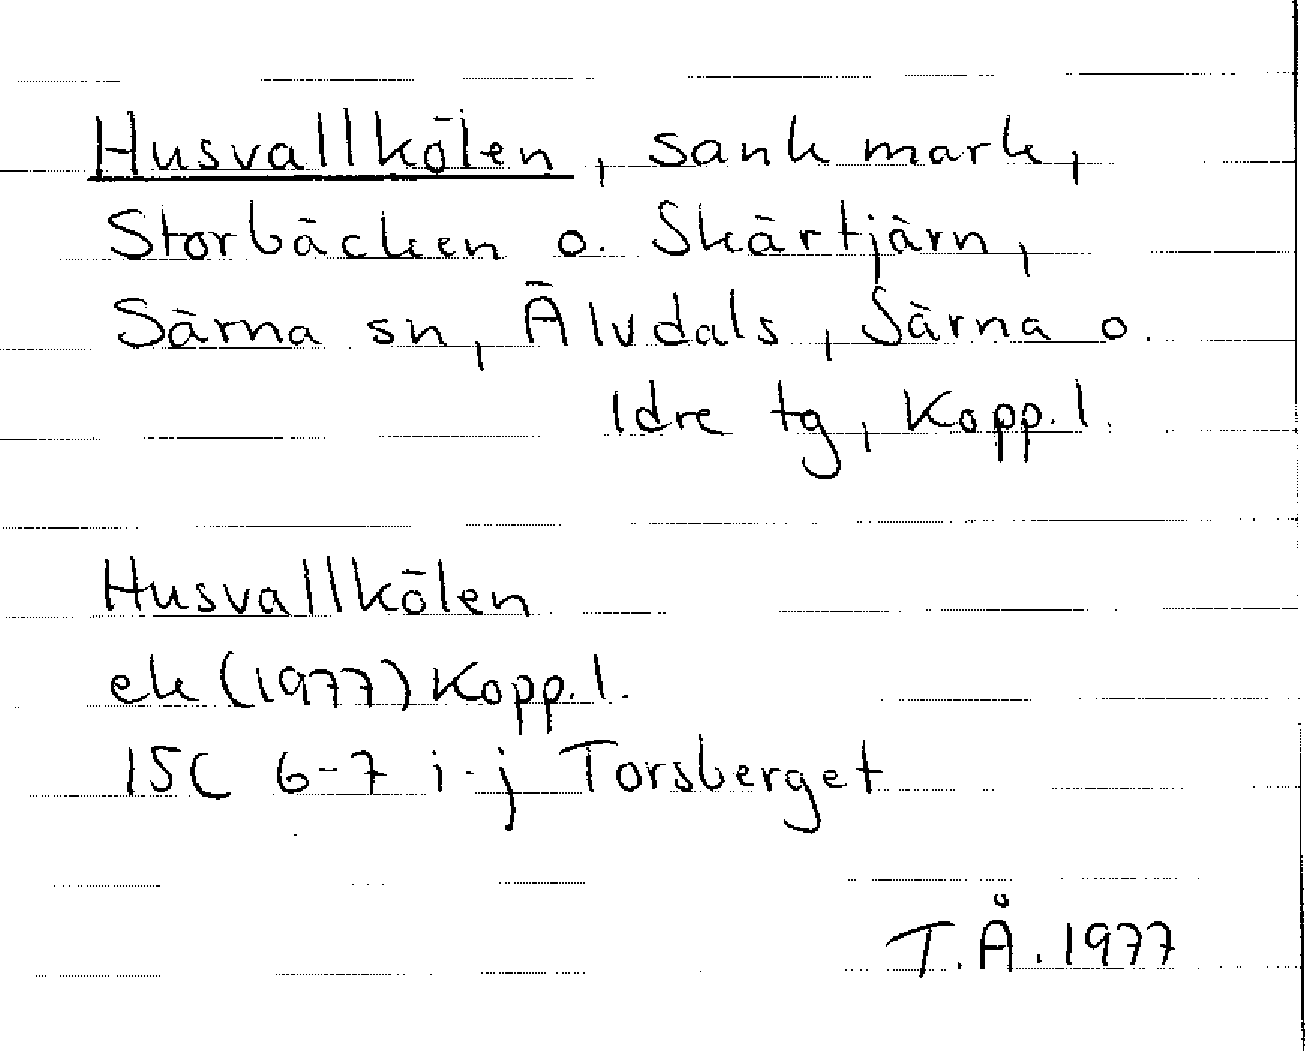 Husvallkölen, sank mark,
Storbäcken o. Skärtjärn,
Särna sn, Älvdals, Särna o.
Idre tg, Kopp. l.
Husvallkölen
ek (1977) Kopp. l.
15C 6-7 i-j Torsberget
T.Å. 1977